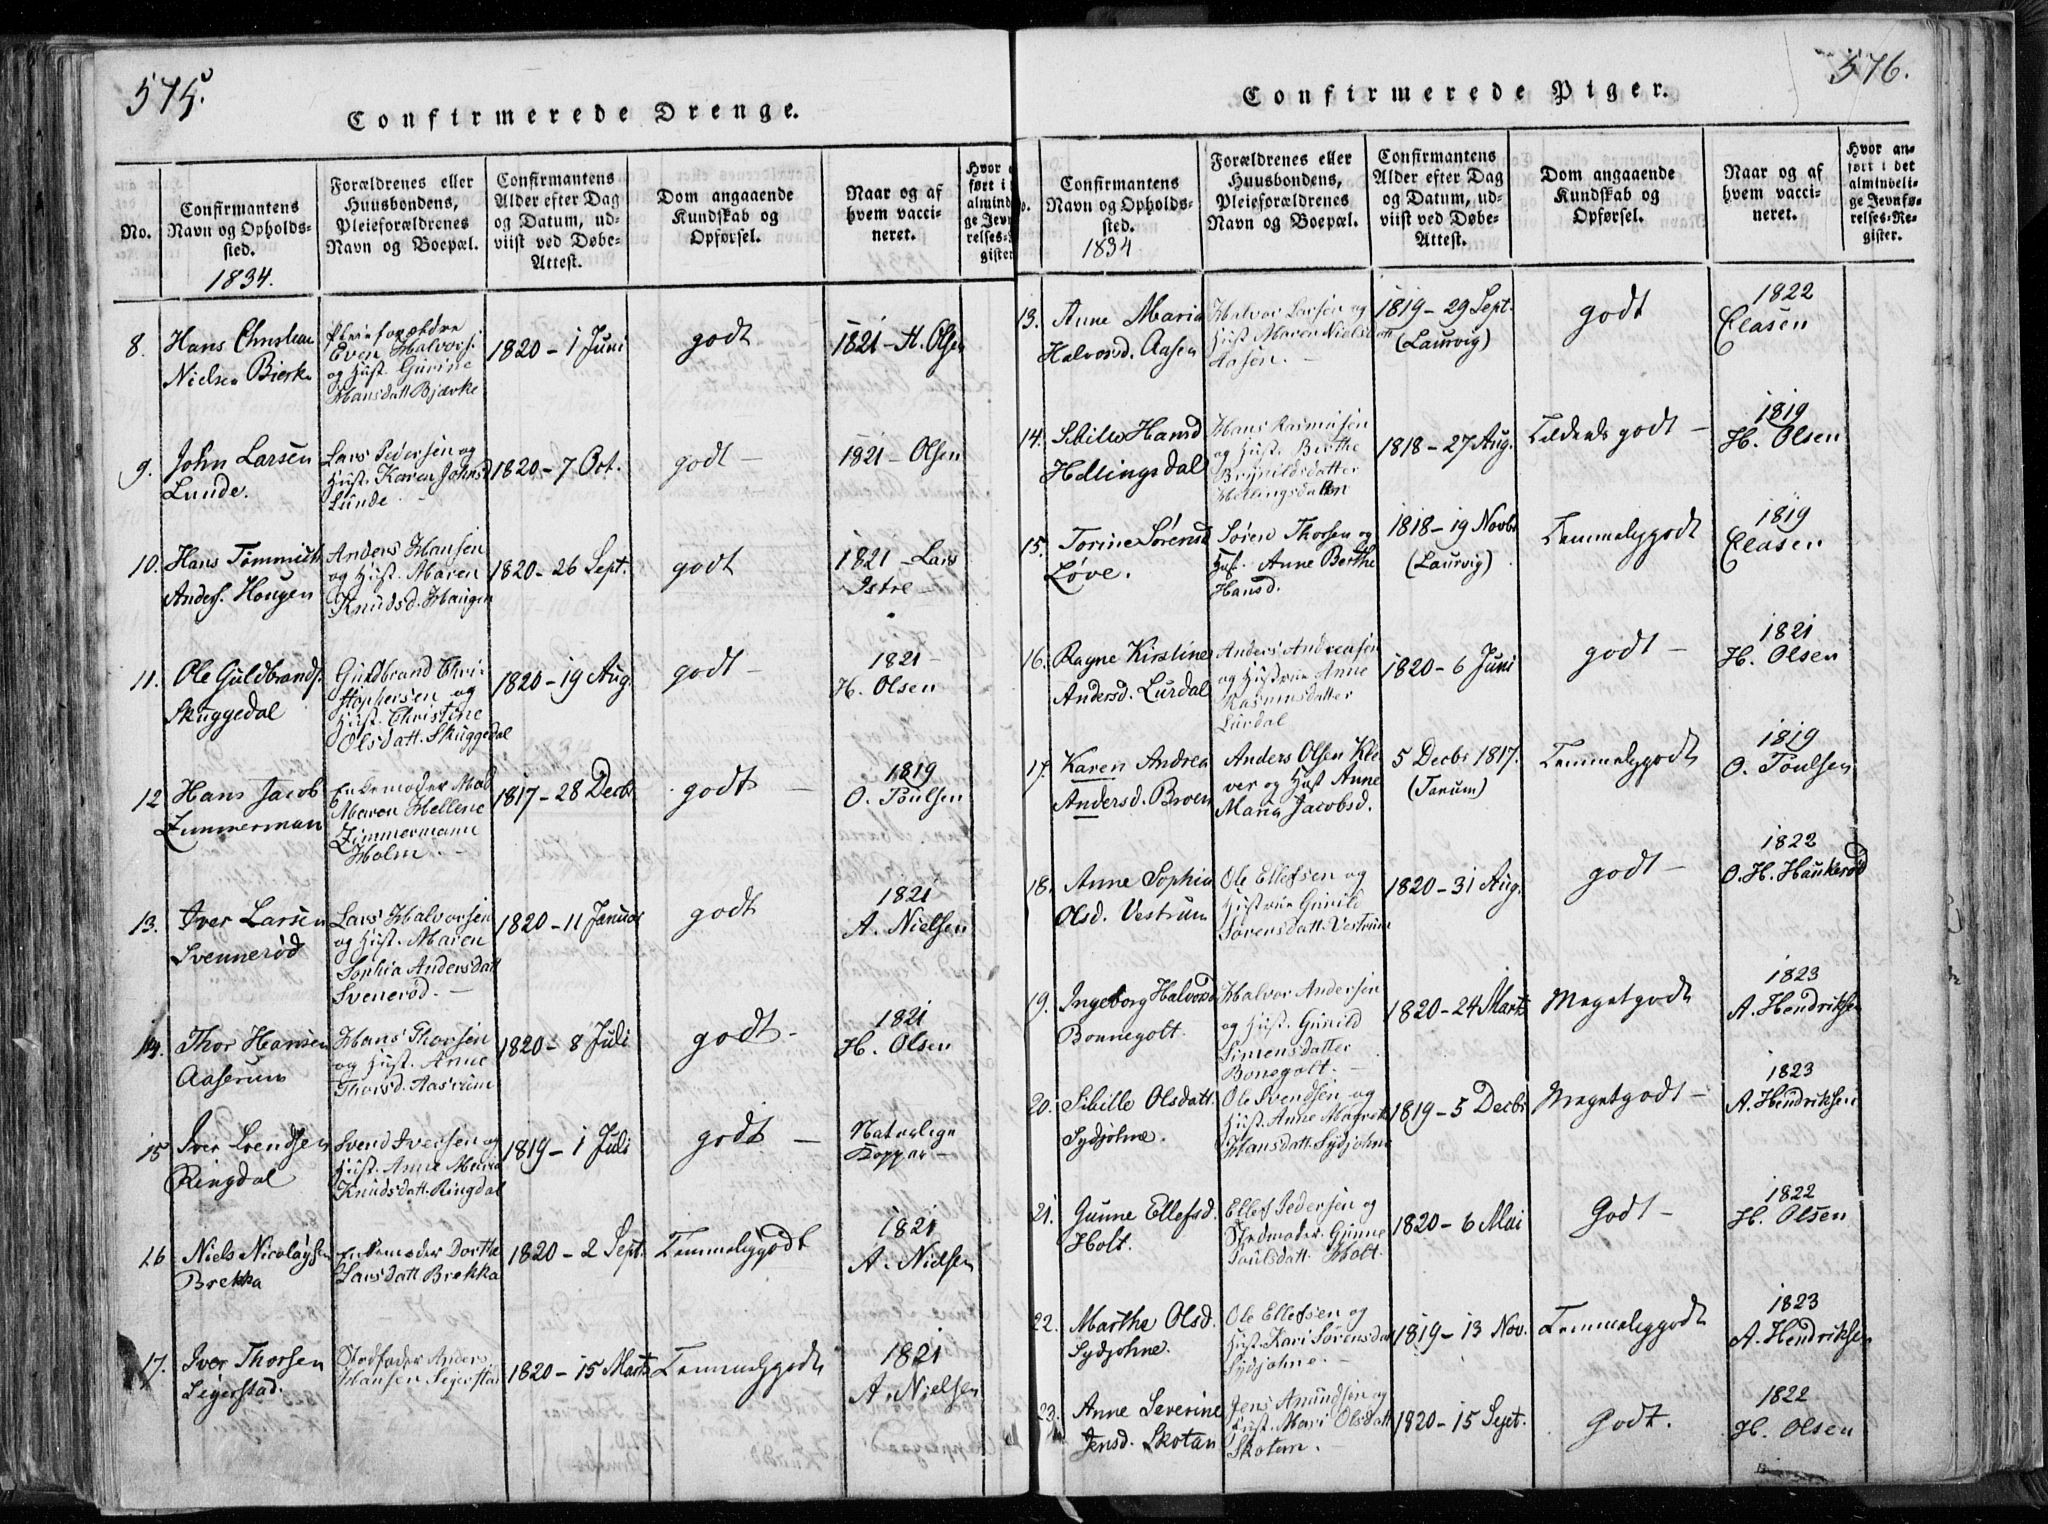 575.
Confirmerede Drenge.
No.
Confirmantens
Navn og Opholds-
sted.
1834.
Forældrenes eller
Huusbondens,
Pleieforældrenes
Navn og Boepæl.
Confirmantens
Alder efter Dag
og Datum, ud-
viist ved Døbe-
Attest.
Dom angaaende
Kundskab og
Opførsel.
Naar og af
hvem vacci-
neret.
Hvor
ført i
almind
ge Jev
relses-
gister
8.
Hans Christian
Nielsen Bierke
Pleieforældre
Even Halvors.
og Hust. Gurine
Hansdatt Bjærke
1820 - 1 Juni
godt
1821 - H. Olsen
9.
John Larsen
Lunde.
Lars Pedersen og
Hust. Karen Johnsd
Lunde
1820 - 7 Oct.
godt -
1821 - Olsen
10.
Hans
Anders. Hougen
Anders Hansen
og Hust. Maren
Knudsd. Haugen
1820 - 26 Sept.
godt
1821 - Lars
Istre -
11.
Ole Guldbrands.
Skuggedal
Guldbrand Chri-
stophersen og
Hust. Christine
Olsdatt. Skuggedal
1820 - 19 Aug.
godt -
1821 -
H. Olsen
12
Hans Jacob
Zimmerman
Enkemoder Mad
Maren Hellene
Zimmermann
Holm. -
1817 - 28 Decbr
godt -
1819
O. Poulsen
13.
Iver Larsen
Svennerød
Lars Halvorsen
og Hust. Maren
Sophia Andersdatt
Svenerød. -
1820 - 11 Januar
godt
1821
A. Nielsen
14.
Thor Hansen
Aaserum
Hans Thorsen
og Hust. Anne
Thorsd. Aasrum
1820 - 8 Juli
godt -
1821
H. Olsen
15
Iver Svendsen
Ringdal
Svend Iversen og
Hust. Anne Maria
Knudsdatt. Ringdal
1819 - 1 Juli
godt -
Naturlige
Kopper -
16
Niels Nicolaysen
Brekka
Enkemoder Dorthe
Larsdatt Brekka
1820 - 2 Sept.
Temmeliggodt
1821
A. Nielsen
17.
Iver Thorsen
Segerstad.
Stedfader Anders
Hansen Segerstad
1820 - 15 Marts
Temmeliggodt
1821
A. Nielsen
576.
Confirmerede Piger.
Confirmantens
Navn og Opholds-
sted.
1834
Forældrenes eller
Huusbondens,
Pleieforældrenes
Navn og Boepæl.
Confirmantens
Alder efter Dag
og Datum, ud-
viist ved Døbe-
Attest.
Dom angaaende
Kundskab og
Opførsel.
Naar og af
hvem vacci-
neret.
Hvor an-
ført i det
almindeli-
ge Jevnfø-
relses-Re-
gister.
13.
Anne Maria
Halvorsd. Aasen
Halvor Larsen og
Hust Maren Nielsdatt
Aasen. -
1819 - 29 Sept.
(Laurvig)
godt
1822
Clasen
14.
Sibille Hansd
Hellingsdal
Hans Rasmusen
og Hust. Birthe
Brynildsdatter
1818 - 27 Aug.
godt -
1819
H. Olsen
15.
Torine Sørensd
Løve.
Søren Thorsen og
Hust. Anne Berthe
Hansd.
1818 - 19 Novbr
(Laurvig)
Temmeliggodt
1819
Clasen
16.
Ragne Kirstine
Andersd. Lurdal
Anders Andreasen
og Hustrue Anne
Rasmusdatter
Lurdal
1820 - 6 Juni
godt -
1821
H. Olsen
17.
Karen Andrea
Andersd. Broen
Anders Olsen Kle-
ver og Hust Anne
Maria Jacobsd.
5 Decbr 1817.
(Tanum)
Temmeliggodt
1819
O. Poulsen
18.
Anne Sophia
Olsd. Vestrum
Ole Ellefsen og
Hustrue Gunild
Sørensdatt. Vestrum
1820 - 31 Aug.
godt -
1822
O. H. Haukerød
19.
Ingeborg Halvorsd
Bonnegolt.
Halvor Andersen
og Hust. Gunild
Simensdatter
Bonegolt. -
1820 - 24 Marts
Megetgodt
1823
A. Hendriksen
20.
Sibille Olsdatt.
Sydjohne.
Ole Svendsen og
Hust. Anne Magrete
Hansdatt. Sydjohne
1819 - 5 Decbr
Megetgodt -
1823
A. Hendriksen
21.
Gunne Ellefsd.
Holt.
Ellef Pedersen og
Stedmoder Gunne
Poulsdatt. Holt.
1820 - 6 Mai
Godt -
1822
H. Olsen
22.
Marthe Olsd.
Sydjohne.
Ole Ellefsen og
Hust. Kari Sørensdatt
Sydjohne. -
1819 - 13 Nov.
Temmeliggodt
1823
A. Hendriksen
23.
Anne Severine
Jensd. Skotan
Jens Amundsen og
Hust. Mari Olsdatt
Skotan. -
1820 - 15 Sept.
Godt.
1822
H. Olsen